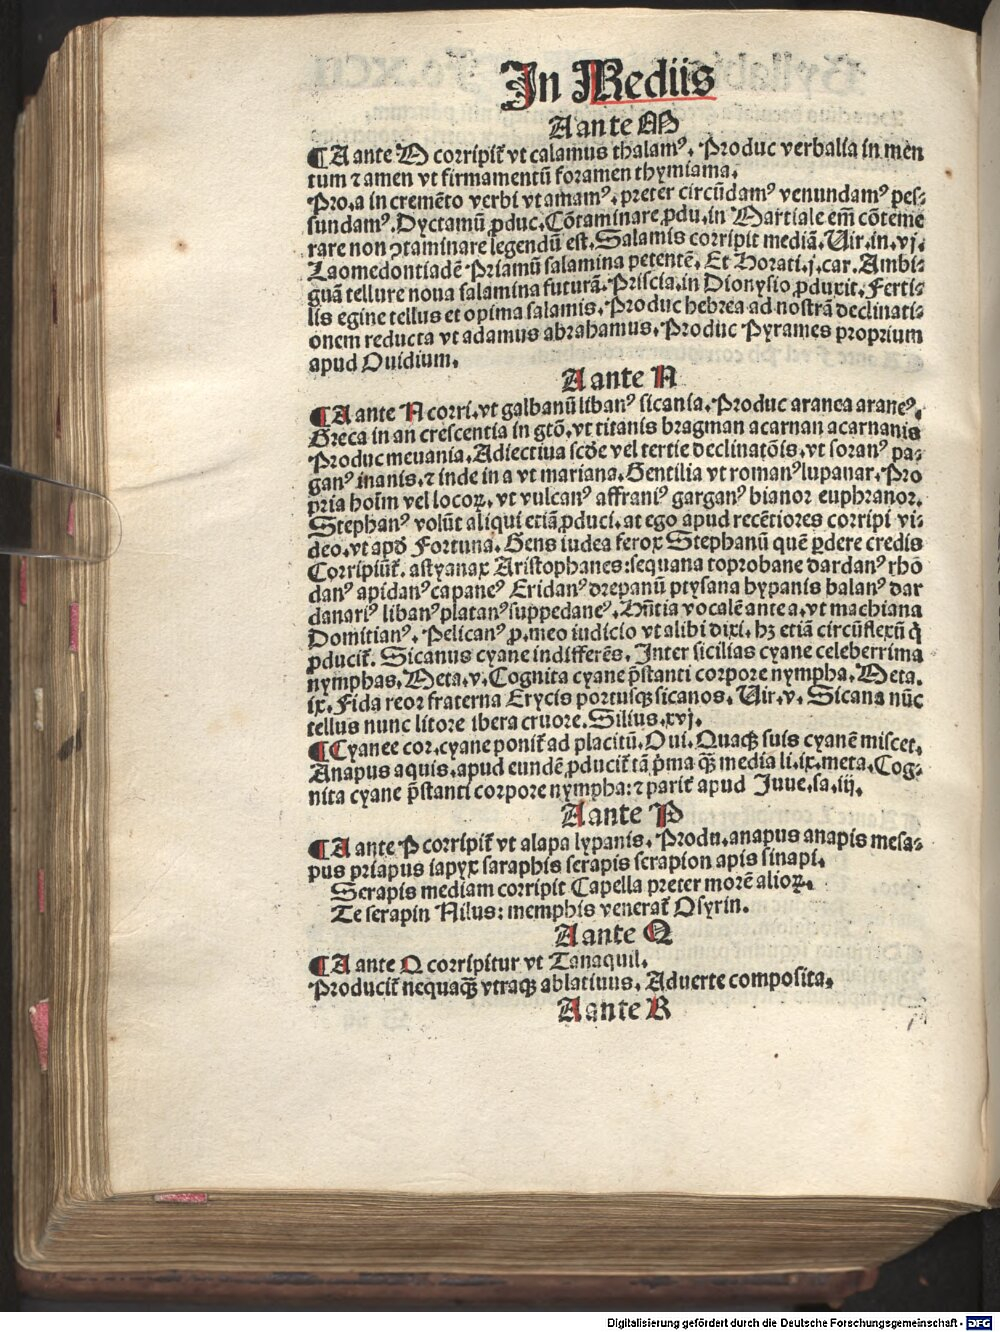 In Mediis
A ante M
¶A ante M corripit̃ vt calamus thalamꝰ. Produc verbalia in men
tum ⁊ amen vt firmamentũ foramen thymiama.
Pro.a in cremẽto verbi vt amamꝰ. preter circũdamꝰ venundamꝰ pes⸗
sundamꝰ. Dyctamũ ꝓduc. Cõtaminare ꝓdu. in Martiale em̃ cõteme
rare non ꝯtaminare legendũ est. Salamis corripit mediã. Uir. in. vj.
Laomedontiadẽ Priamũ salamina petentẽ. Et Horati. j. car. Ambi⸗
guã tellure noua salamina futurã. Priscia. in Dionysio ꝓduxit. Ferti⸗
lis egine tellus et opima salamis. Produc hebrea ad nostrã declinati⸗
onem reducta vt adamus abrahamus. Produc Pyrames proprium
apud Ouidium.
A ante N
¶A ante N corri. vt galbanũ libanꝰ sicania. Produc aranea araneꝰ.
Greca in an crescentia in gtõ. vt titanis bragman acarnan acarnanis
Produc meuania. Adiectiua scd̃e vel tertie declinatõis. vt soranꝰ pa⸗
ganꝰ inanis. ⁊ inde in a vt mariana. Gentilia vt romanꝰ lupanar. Pro
pria hoĩm vel locoꝝ. vt vulcanꝰ affraniꝰ garganꝰ bianor euphranor.
Stephanꝰ volũt aliqui etiã ꝓduci. at ego apud recẽtiores corripi vi⸗
deo. vt apd̃ Fortuna. Gens iudea ferox Stephanũ quẽ ꝑdere credis
Corripiũt̃. astyanax Aristophanes: sequana toprobane dardanꝰ rho
danꝰ apidanꝰ capaneꝰ Eridanꝰ drepanũ ptysana hypanis balanꝰ dar
danariꝰ libanꝰ platanꝰ suppedaneꝰ. Hñtia vocalẽ ante a. vt machiana
Domitianꝰ. Pelicanꝰ ꝓ. meo iudicio vt alibi dixi. hꝫ etiã circũflexũ q̃
ꝓducit̃. Sicanus cyane indifferẽs. Inter sicilias cyane celeberrima
nymphas. Meta. v. Cognita cyane p̃stanti corpore nympha. Meta.
ix. Fida reor fraterna Erycis portusqꝫ sicanos. Uir. v. Sicana nũc
tellus nunc litore ibera cruore. Silius. xvj.
¶Cyanee cor. cyane ponit̃ ad placitũ. Oui. Quaqꝫ suis cyanẽ miscet.
Anapus aquis. apud eundẽ ꝓducit̃ tã p̃ma q̃ꝫ media li. ix. meta. Cog⸗
nita cyane p̃stanti corpore nympha: ⁊ parit̃ apud Juue. sa. iij.
A ante P
¶A ante P corripit̃ vt alapa lypanis. Produ. anapus anapis mesa⸗
pus priapus iapyx saraphis serapis serapion apis sinapi.
Serapis mediam corripit Capella preter morẽ alioꝝ.
Te serapin Nilus: memphis venerat̃ Osyrin.
A ante Q
¶A ante Q corripitur vt Tanaquil.
Producit̃ nequaq̃ꝫ vtraqꝫ ablatiuus. Aduerte composita.
A ante R
Digitalisierung gefördert durch die Deutsche Forschungsgemeinschaft - DFG